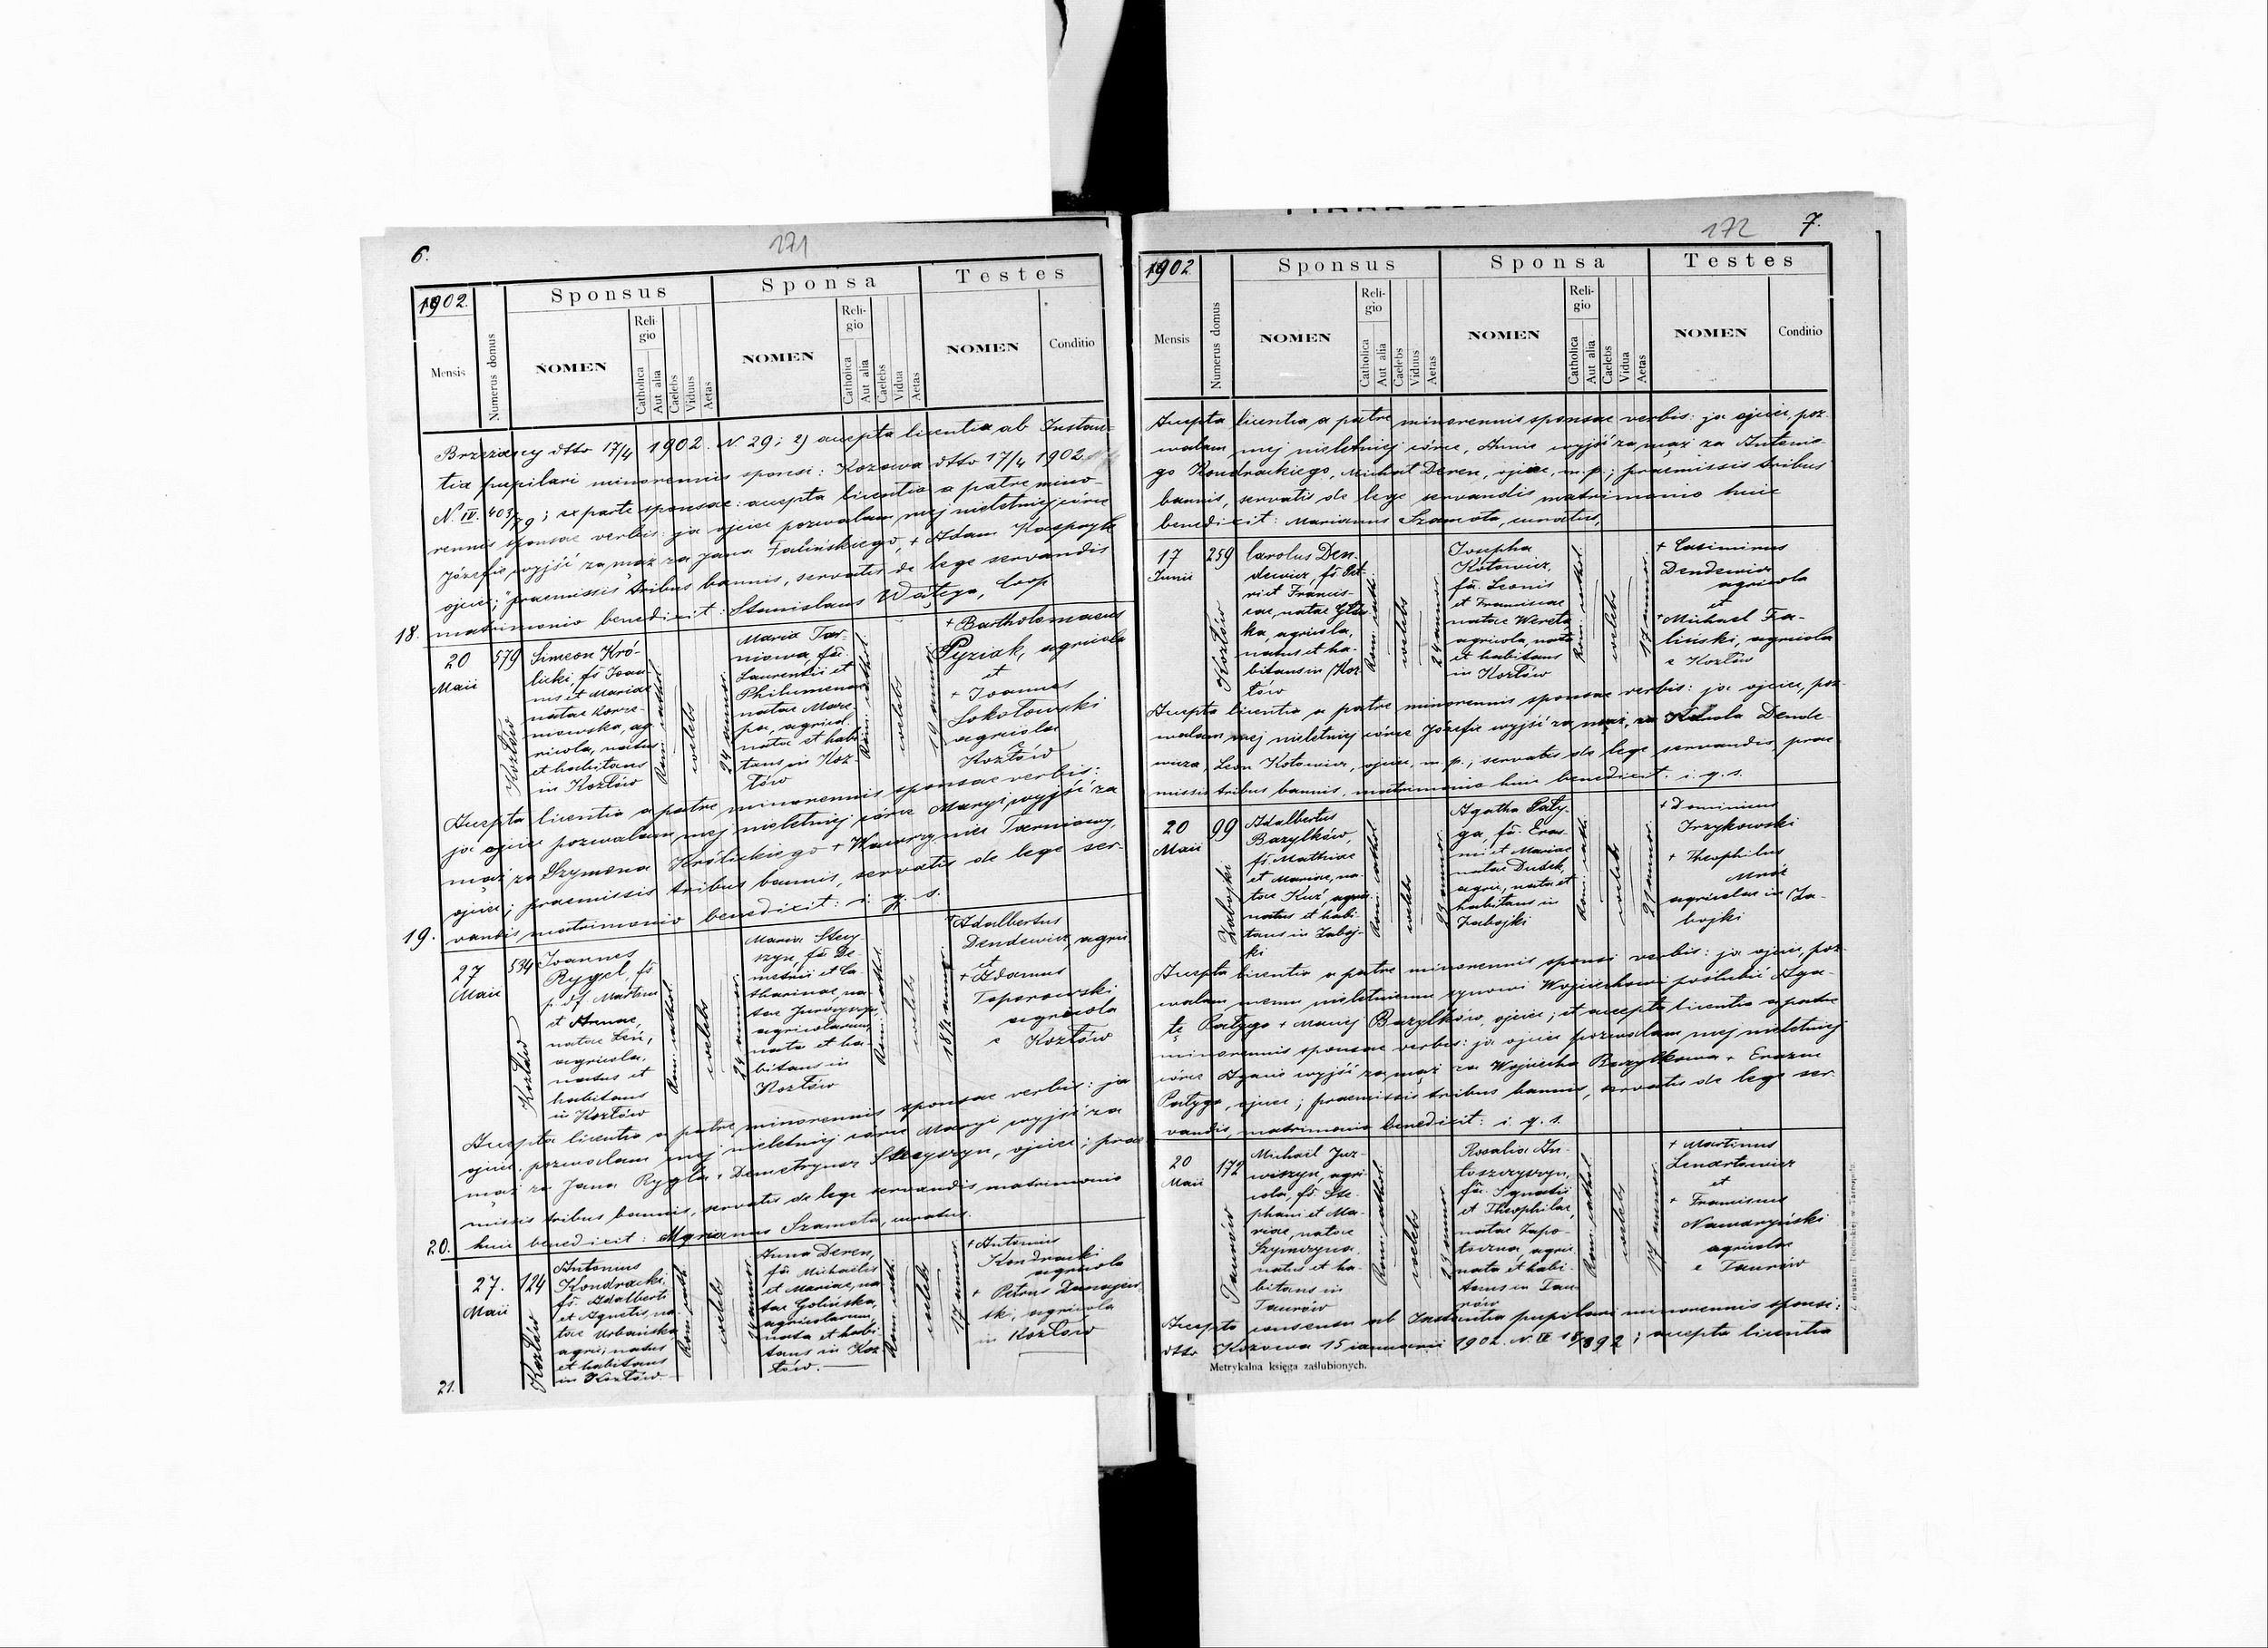 6.
171
1902.
Sponsus
Sponsa
Testes
Mensis
Numerus domus
NOMEN
Religio
Catholica
Aut alia
Caelebs
Viduus
Aetas
NOMEN
Religio
Catholica
Aut alia
Caelebs
Vidua
Aetas
NOMEN
Conditio
Brzezany dtto 17/4 1902. N. 29; 2) accepta licentia ab Instan-
tia pupilari minorennis sponsi: Kozowa dtto 17/4 1902
N. IV. 403/79; ex parte sponsae: accepta licentia a patre mino-
rennis sponsae verbis: ja ojciec pozwalam mej nieletniej córce
Józefie wyjść za mąż za Jana Falińskiego, + Adam Kasprzyk
ojciec; praemissis tribus bannis, servatis de lege servandis
matrimonio benedixit: Stanislaus Wałęga, Coop
18.
20
Maii
579
Kozłów
Simeon Kró-
licki, fs Joan-
nis et Mariae
natae Korze-
niowska, ag-
ricola, natus
et habitans
in Kozłów
Rom. cathol.
coelebs
24 annor.
Maria Tar-
niowa, fa
Laurentii et
Philumenae
natae Marc-
pa, agricol.
nata et habi-
tans in Koz-
łów
Rom. cathol.
coelebs
19 annor.
+ Bartholomaeus
Pyziak, agricola
et
+ Joannes
Sokołowski
agricola
Kozłów
Accepta licentia a patre minorennis sponsae verbis:
ja ojciec pozwalam mej nieletniej córce Maryi wyjść za
mąż za Szymona Królickiego + Wawrzyniec Tarniowy,
ojciec; praemissis tribus bannis, servatis de lege ser-
vandis matrimonio benedixit: i. q. s.
19.
27
Maii
534
Kozłów
Joannes
Rygel, fs
p. df. Martini
et Annae,
natae Leń,
agricola,
natus et
habitans
in Kozłów
Rom. cathol.
coelebs
24 annor.
Maria Stecy-
szyn, fa De-
metrii et Ca-
tharinae, na-
tae Jurczyszyn,
agricolarum,
nata et ha-
bitans in
Kozłów
Rom. cathol.
coelebs
18 1/2 annor.
+ Adalbertus
Dendewicz, agric
et
+ Adamus
Toporowski
agricola
e Kozłów
Accepta licentia a patre minorennis sponsae verbis: ja
ojciec pozwalam mej nieletniej córce Maryi wyjść za
mąż za Jana Rygla + Demetryusz Stecyszyn, ojciec; prae-
missis tribus bannis, servatis de lege servandis matrimonio
huic benedixit: Marianus Szamota, curatus.
20.
27.
Maii
124
Kozłów
Antonius
Kondracki
fs. Adalberti
et Agnetis, na-
tae Urbańska
agric, natus
et habitans
in Kozłów
Rom. cath.
coelebs
24 annor.
Anna Deren,
fa Michaelis
et Mariae, na-
tae Golińska,
agricolarum,
nata et habi-
tans in Koz-
łów.
Rom. cath.
coelebs
17 annor.
+ Antonius
Kondracki
agricola
+ Petrus Dunajew-
ski, agricola
in Kozłów
21.
172
7.
1902
Sponsus
Sponsa
Testes
Mensis
Numerus domus
NOMEN
Religio
Catholica
Aut alia
Caelebs
Viduus
Aetas
NOMEN
Religio
Catholica
Aut alia
Caelebs
Vidua
Aetas
NOMEN
Conditio
Accepta licentia a patre minorennis sponsae verbis: ja ojciec, poz-
walam mej nieletniej córce, Annie wyjść za mąż za Antonie-
go Kondrackiego, Michał Deren, ojciec, m. p.; praemissis tribus
bannis, servatis de lege servandis matrimonio huic
benedixit: Marianus Szamota, curatus,
17
Junii
259
Kozłów
Carolus Den-
dewicz, fs Pet-
ri et Francis-
cae, natae Gliń-
ka, agricola,
natus et ha-
bitans in Koz-
łów
Rom. cath.
coelebs
24 annor.
Josepha
Kotowicz,
fa. Leonis
et Franciscae
natae Wereta
agricola, nata
et habitans
in Kozłów
Rom. cathol.
coelebs
17 annor.
+ Casimirus
Dendewicz
agricola
et
+ Michael Fa-
liński, agricola
e Kozłów
Accepta licentia a patre minorennis sponsae verbis: ja ojciec, poz-
walam mej nieletniej córce Józefie wyjść za mąż, za Karola Dende-
wicza, Leon Kotowicz, ojciec, m. p.; servatis de lege servandis, prae-
missis tribus bannis, matrimonio huic benedixit: i. q. s.
20
Maii
99
Zabojki
Adalbertus
Bazylków,
fs Mathiae
et Mariae, na-
tae Kuś, agric.
natus et habi-
tans in Zaboj-
ki
Rom. cathol.
coelebs
Agatha Pały-
ga, fa. Eras-
mi et Mariae
natae Dudek,
agric., nata et
habitans in
Zabojki
Rom. cath.
coelebs
21 annor.
+ Dominicus
Irzykowski
+ Theophilus
Mróz
agricolae in Za-
bojki
Accepta licentia a patre minorennis sponsi verbis: ja ojciec, poz-
walam memu nieletniemu synowi Wojciechowi poślubić Aga-
tę Pałygę + Maciej Bazylków, ojciec; et accepta licentia a patre
minorennis sponsae verbis: ja ojciec pozwalam mej nieletniej
córce Agacie wyjść za mąż za Wojciecha Bazylkowa + Erazm
Pałyga, ojciec; praemissis tribus bannis, servatis de lege ser-
vandis, matrimonio benedixit: i. q. s.
20
Maii
172
Taurów
Michael Jur-
wiszyn, agri-
cola, fs. Ste-
phani et Ma-
riae, natae
Szymczyna
natus et ha-
bitans in
Taurów
Rom. cathol.
coelebs
23 annor.
Rosalia An-
toszczyszyn,
fa. Ignatii
et Theophilae,
natae Zapo-
toczna, agric.
nata et habi-
tans in Tau-
rów
Rom. cathol.
coelebs
17 annor.
+ Martinus
Lenartowicz
et
+ Franciscus
Nawaryński
agricolae
e Taurów
Accepto consensu ab Instantia pupilari minorennis sponsi:
dtto Kozowa 15 ianuarii 1902. N. IV. ; accepta licentia
Metrykalna księga zaślubionych.